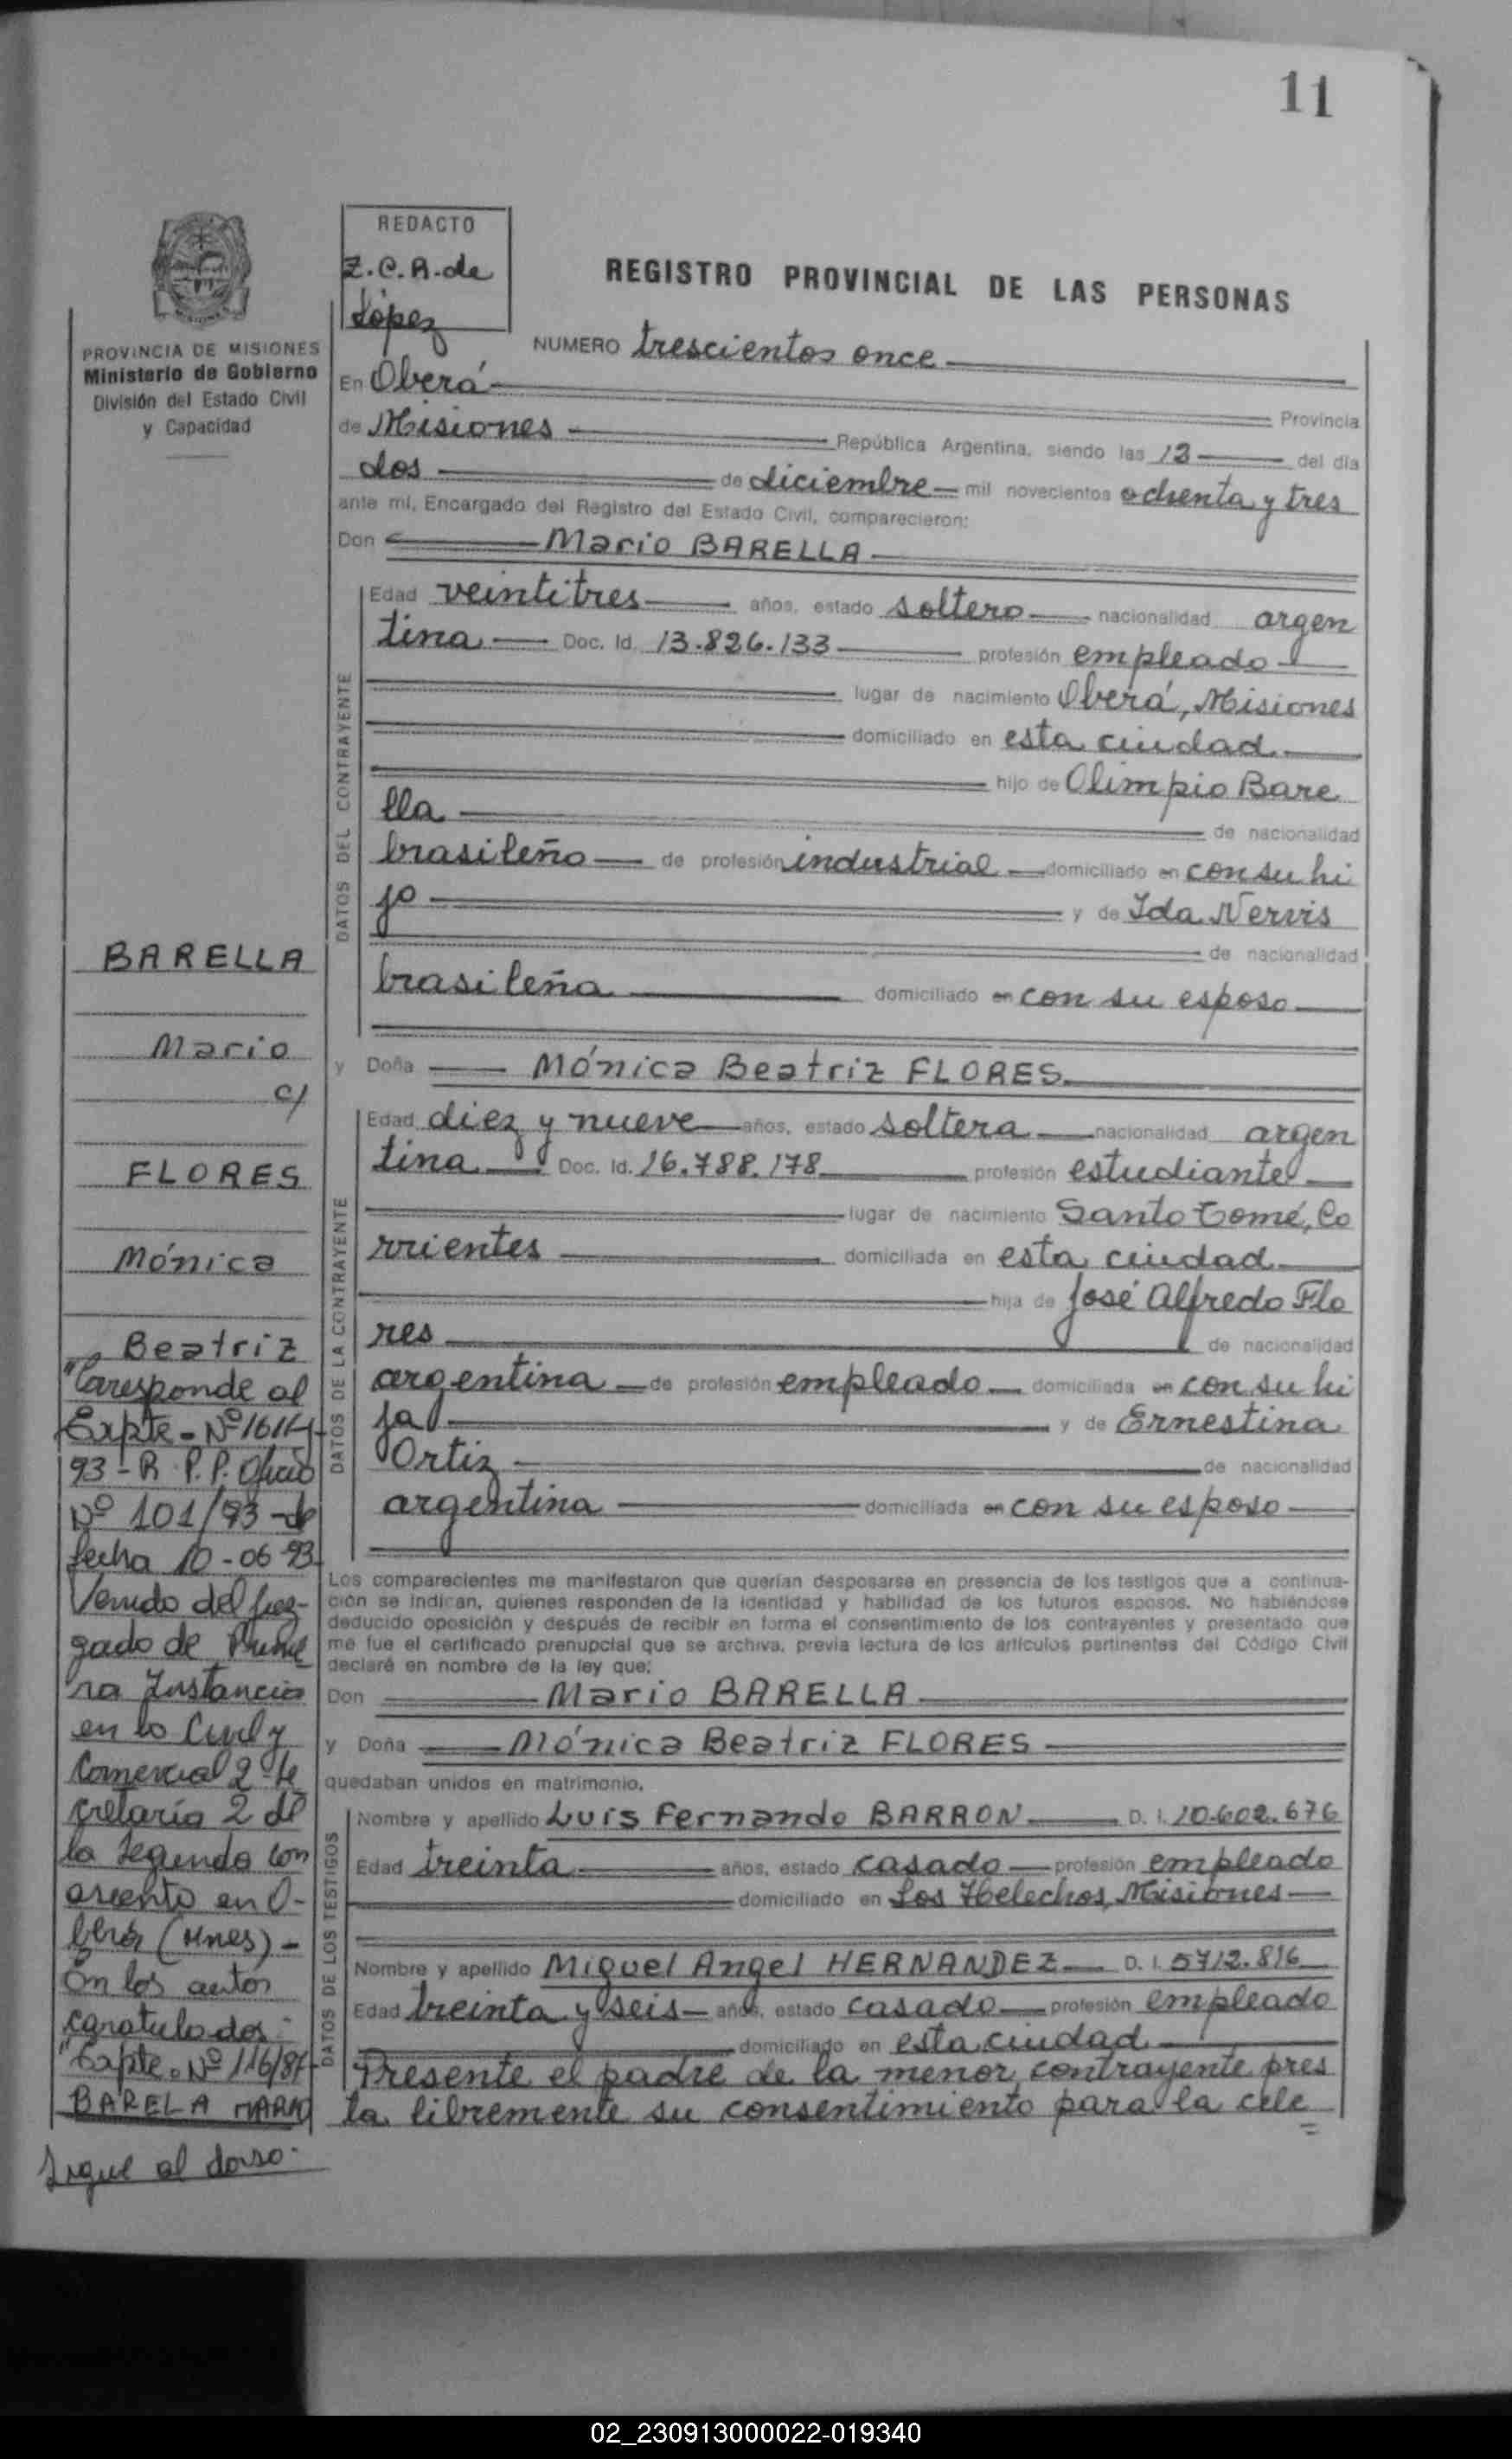 11
REDACTO
Z.C.A. de
López
REGISTRO PROVINCIAL DE LAS PERSONAS
PROVINCIA DE MISIONES
Ministerio de Gobierno
División del Estado Civil
y Capacidad
NUMERO trescientos once
En Oberá Provincia
de Misiones República Argentina, siendo las 13 del día
dos de diciembre mil novecientos ochenta y tres
ante mí, Encargado del Registro del Estado Civil, comparecieron:
Don Mario BARELLA
DATOS DEL CONTRAYENTE
Edad veintitres años, estado soltero nacionalidad argen
tina Doc. Id. 13.826.133 profesión empleado
lugar de nacimiento Oberá, Misiones
domiciliado en esta ciudad.
hijo de Olimpio Bare
lla de nacionalidad
brasileño de profesión industrial domiciliado en con su hi
jo y de Ida Nervis
de nacionalidad
brasileña domiciliado en con su esposo
y Doña Mónica Beatriz FLORES.
DATOS DE LA CONTRAYENTE
Edad diez y nueve años, estado soltera nacionalidad argen
tina Doc. Id. 16.788.178 profesión estudiante
lugar de nacimiento Santo Tomé, Co
rrientes domiciliada en esta ciudad.
hija de José Alfredo Flo
res de nacionalidad
argentina de profesión empleado domiciliada en con su hi
ja y de Ernestina
Ortiz de nacionalidad
argentina domiciliada en con su esposo
Los comparecientes me manifestaron que querían desposarse en presencia de los testigos que a continua-
ción se indican, quienes responden de la identidad y habilidad de los futuros esposos. No habiéndose
deducido oposición y después de recibir en forma el consentimiento de los contrayentes y presentado que
me fue el certificado prenupcial que se archiva, previa lectura de los artículos pertinentes del Código Civil
declaré en nombre de la ley que:
Don Mario BARELLA
y Doña Mónica Beatriz FLORES
quedaban unidos en matrimonio.
DATOS DE LOS TESTIGOS
Nombre y apellido Luis Fernando BARRON D. I. 10.602.676
Edad treinta años, estado casado profesión empleado
domiciliado en Los Helechos, Misiones
Nombre y apellido Miguel Angel HERNANDEZ D. I. 5712.816
Edad treinta y seis años, estado casado profesión empleado
domiciliado en esta ciudad.
Presente el padre de la menor contrayente pres
ta libremente su consentimiento para la cele
BARELLA
Mario
c/
FLORES
Mónica
Beatriz
"Coresponde al
Expte. Nº 1614-
93-R.P.P. Oficio
Nº 101/93 - de
fecha 10-06-93
Venido del Juz-
gado de Prime
ra Instancia
en lo Civil y
Comercial 2 Se
cretaría 2 de
la Segunda con
asiento en O-
berá (Mnes) -
En los autos
caratulados:
"Expte. Nº 116/87-
BARELA MARIO
Sigue al dorso.
02_230913000022-019340